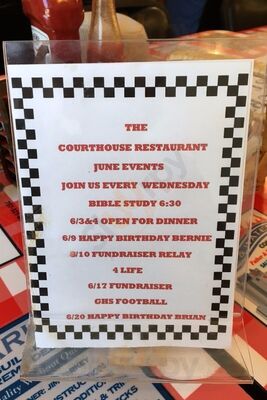 THE
COURTHOUSE RESTAURANT
JUNE EVENTS
JOIN US EVERY WEDNESDAY
BIBLE STUDY 6:30
6/3&4 OPEN FOR DINNER
6/9 HAPPY BIRTHDAY BERNIE
6/10 FUNDRAISER RELAY
4 LIFE
6/17 FUNDRAISER
GHS FOOTBALL
6/20 HAPPY BIRTHDAY BRIAN